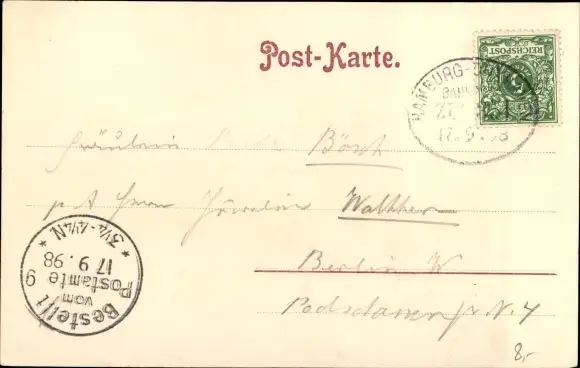 Post-Karte.
REICHSPOST
HAMBURG-
BAHN
17. 9. 98
Fräulein Bösch
p A Herrn Walther
Berlin W
Potsdamer N. 4
Bestellt
vom
Postamte 9
17 9. 98
* 3¼-4¼N *
8,-